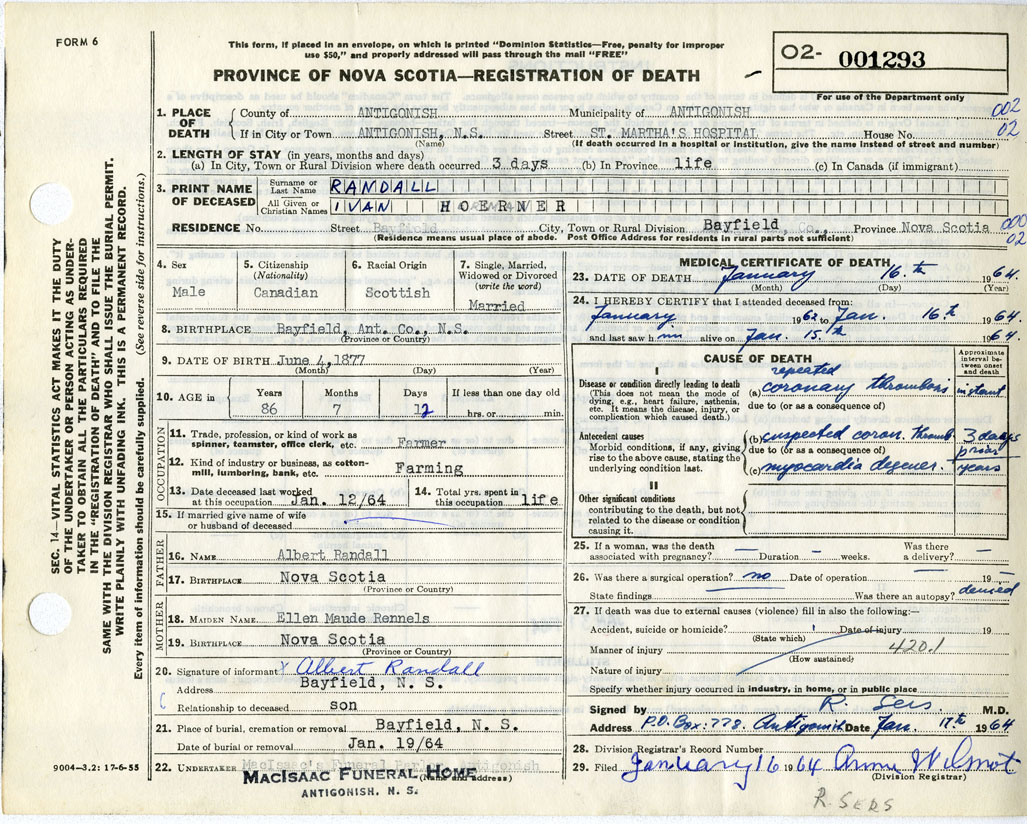 FORM 6
This form, if placed in an envelope, on which is printed "Dominion Statistics—Free, penalty for improper
use $50," and properly addressed will pass through the mail "FREE"
PROVINCE OF NOVA SCOTIA—REGISTRATION OF DEATH
O2- 001293
For use of the Department only
SEC. 14—VITAL STATISTICS ACT MAKES IT THE DUTY
OF THE UNDERTAKER OR PERSON ACTING AS UNDER-
TAKER TO OBTAIN ALL THE PARTICULARS REQUIRED
IN THE "REGISTRATION OF DEATH" AND TO FILE THE
SAME WITH THE DIVISION REGISTRAR WHO SHALL ISSUE THE BURIAL PERMIT.
WRITE PLAINLY WITH UNFADING INK. THIS IS A PERMANENT RECORD.
Every item of information should be carefully supplied. (See reverse side for instructions.)
1. PLACE OF DEATH
County of ANTIGONISH Municipality of ANTIGONISH 002
If in City or Town ANTIGONISH, N.S. Street ST. MARTHA'S HOSPITAL House No. 02
(Name) (If death occurred in a hospital or institution, give the name instead of street and number)
2. LENGTH OF STAY (in years, months and days)
(a) In City, Town or Rural Division where death occurred 3 days (b) In Province life (c) In Canada (if immigrant)
3. PRINT NAME OF DECEASED
Surname or Last Name RANDALL
All Given or Christian Names IVAN HOERNER
RESIDENCE No. Street Bayfield City, Town or Rural Division Bayfield, Co., Province Nova Scotia 000 02
(Residence means usual place of abode. Post Office Address for residents in rural parts not sufficient)
4. Sex
Male
5. Citizenship
(Nationality)
Canadian
6. Racial Origin
Scottish
7. Single, Married,
Widowed or Divorced
(write the word)
Married
8. BIRTHPLACE Bayfield, Ant. Co., N.S.
(Province or Country)
9. DATE OF BIRTH June 4, 1877
(Month) (Day) (Year)
10. AGE in
Years Months Days If less than one day old
86 7 12 hrs. or min.
OCCUPATION
11. Trade, profession, or kind of work as
spinner, teamster, office clerk, etc. Farmer
12. Kind of industry or business, as cotton-
mill, lumbering, bank, etc. Farming
13. Date deceased last worked
at this occupation Jan. 12/64
14. Total yrs. spent in
this occupation life
15. If married give name of wife
or husband of deceased
FATHER
16. NAME Albert Randall
17. BIRTHPLACE Nova Scotia
(Province or Country)
MOTHER
18. MAIDEN NAME Ellen Maude Rennels
19. BIRTHPLACE Nova Scotia
(Province or Country)
20. Signature of informant x Albert Randall
Address Bayfield, N. S.
Relationship to deceased son
21. Place of burial, cremation or removal Bayfield, N. S.
Date of burial or removal Jan. 19/64
22. UNDERTAKER MacIsaac's Funeral Parlor, Antigonish
(Name and address)
MACISAAC FUNERAL HOME
ANTIGONISH, N. S.
9004—3.2: 17-6-55
MEDICAL CERTIFICATE OF DEATH
23. DATE OF DEATH January 16th 1964
(Month) (Day) (Year)
24. I HEREBY CERTIFY that I attended deceased from:
January 1962 to Jan. 16th 1964.
and last saw him alive on Jan. 15th 1964.
CAUSE OF DEATH
Approximate
interval be-
tween onset
and death
I
Disease or condition directly leading to death
(This does not mean the mode of
dying, e.g., heart failure, asthenia,
etc. It means the disease, injury, or
complication which caused death.)
repeated
(a) coronary thrombosis instant
due to (or as a consequence of)
Antecedent causes
Morbid conditions, if any, giving
rise to the above cause, stating the
underlying condition last.
(b) suspected coron. thromb. 3 days
due to (or as a consequence of) prior
(c) myocardia degener. years
II
Other significant conditions
contributing to the death, but not
related to the disease or condition
causing it.
25. If a woman, was the death
associated with pregnancy? — Duration — weeks. Was there
a delivery? —
26. Was there a surgical operation? no Date of operation — 19 —
State findings Was there an autopsy? denied
27. If death was due to external causes (violence) fill in also the following:—
Accident, suicide or homicide? Date of injury 19
(State which)
Manner of injury 420.1
(How sustained)
Nature of injury
Specify whether injury occurred in industry, in home, or in public place
Signed by R. Sers M.D.
Address P.O. Box: 778. Antigonish Date Jan. 17th 1964
28. Division Registrar's Record Number
29. Filed January 16 1964 Anne Wilmot
(Division Registrar)
R. SERS